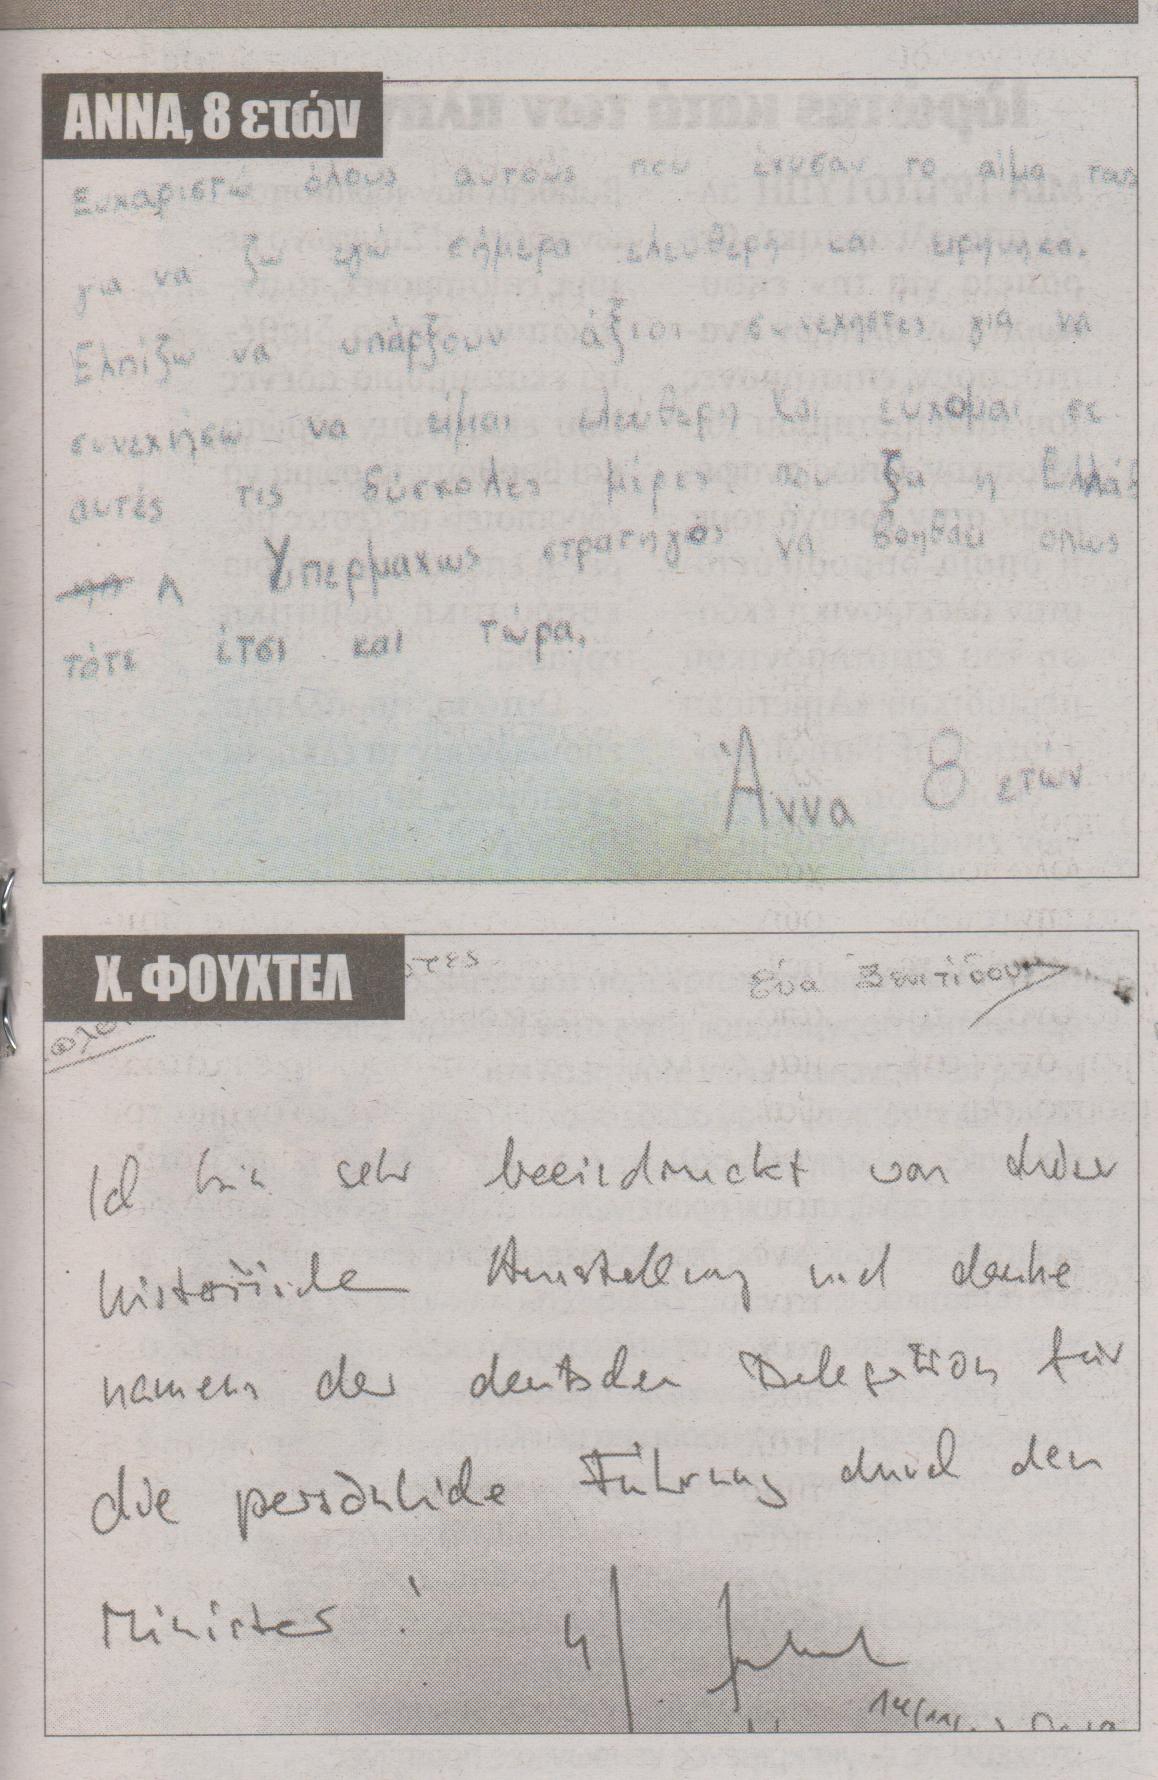 ΑΝΝΑ, 8 ετών
Ευχαριστώ όλους αυτούς που έχυσαν το αίμα τους
για να ζω εγώ σήμερα ελευθερη και ειρηνικά.
Ελπίζω να υπάρξουν άξιοι συνεχηστές για να
συνεχήσω να είμαι ελεύθερη και εύχομαι σε
αυτές τις δύσκολες μέρες που ζει η Ελλάδ
η Υπερμαχως στρατηγός να βοηθάει όπως
τότε έτσι και τώρα.
Άννα 8 ετων
Χ. ΦΟΥΧΤΕΛ
Εύα
Ich bin sehr beeindruckt von dieser
historischen Ausstellung und danke
namens der deutschen Delegation für
die persönliche Führung durch den
Minister!